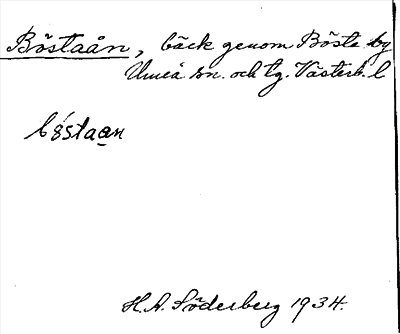 Böstaån, bäck genom Bösta by
Umeå sn. och tg. Västerb. l
bö́staa̲n
H.A. Söderberg 1934.